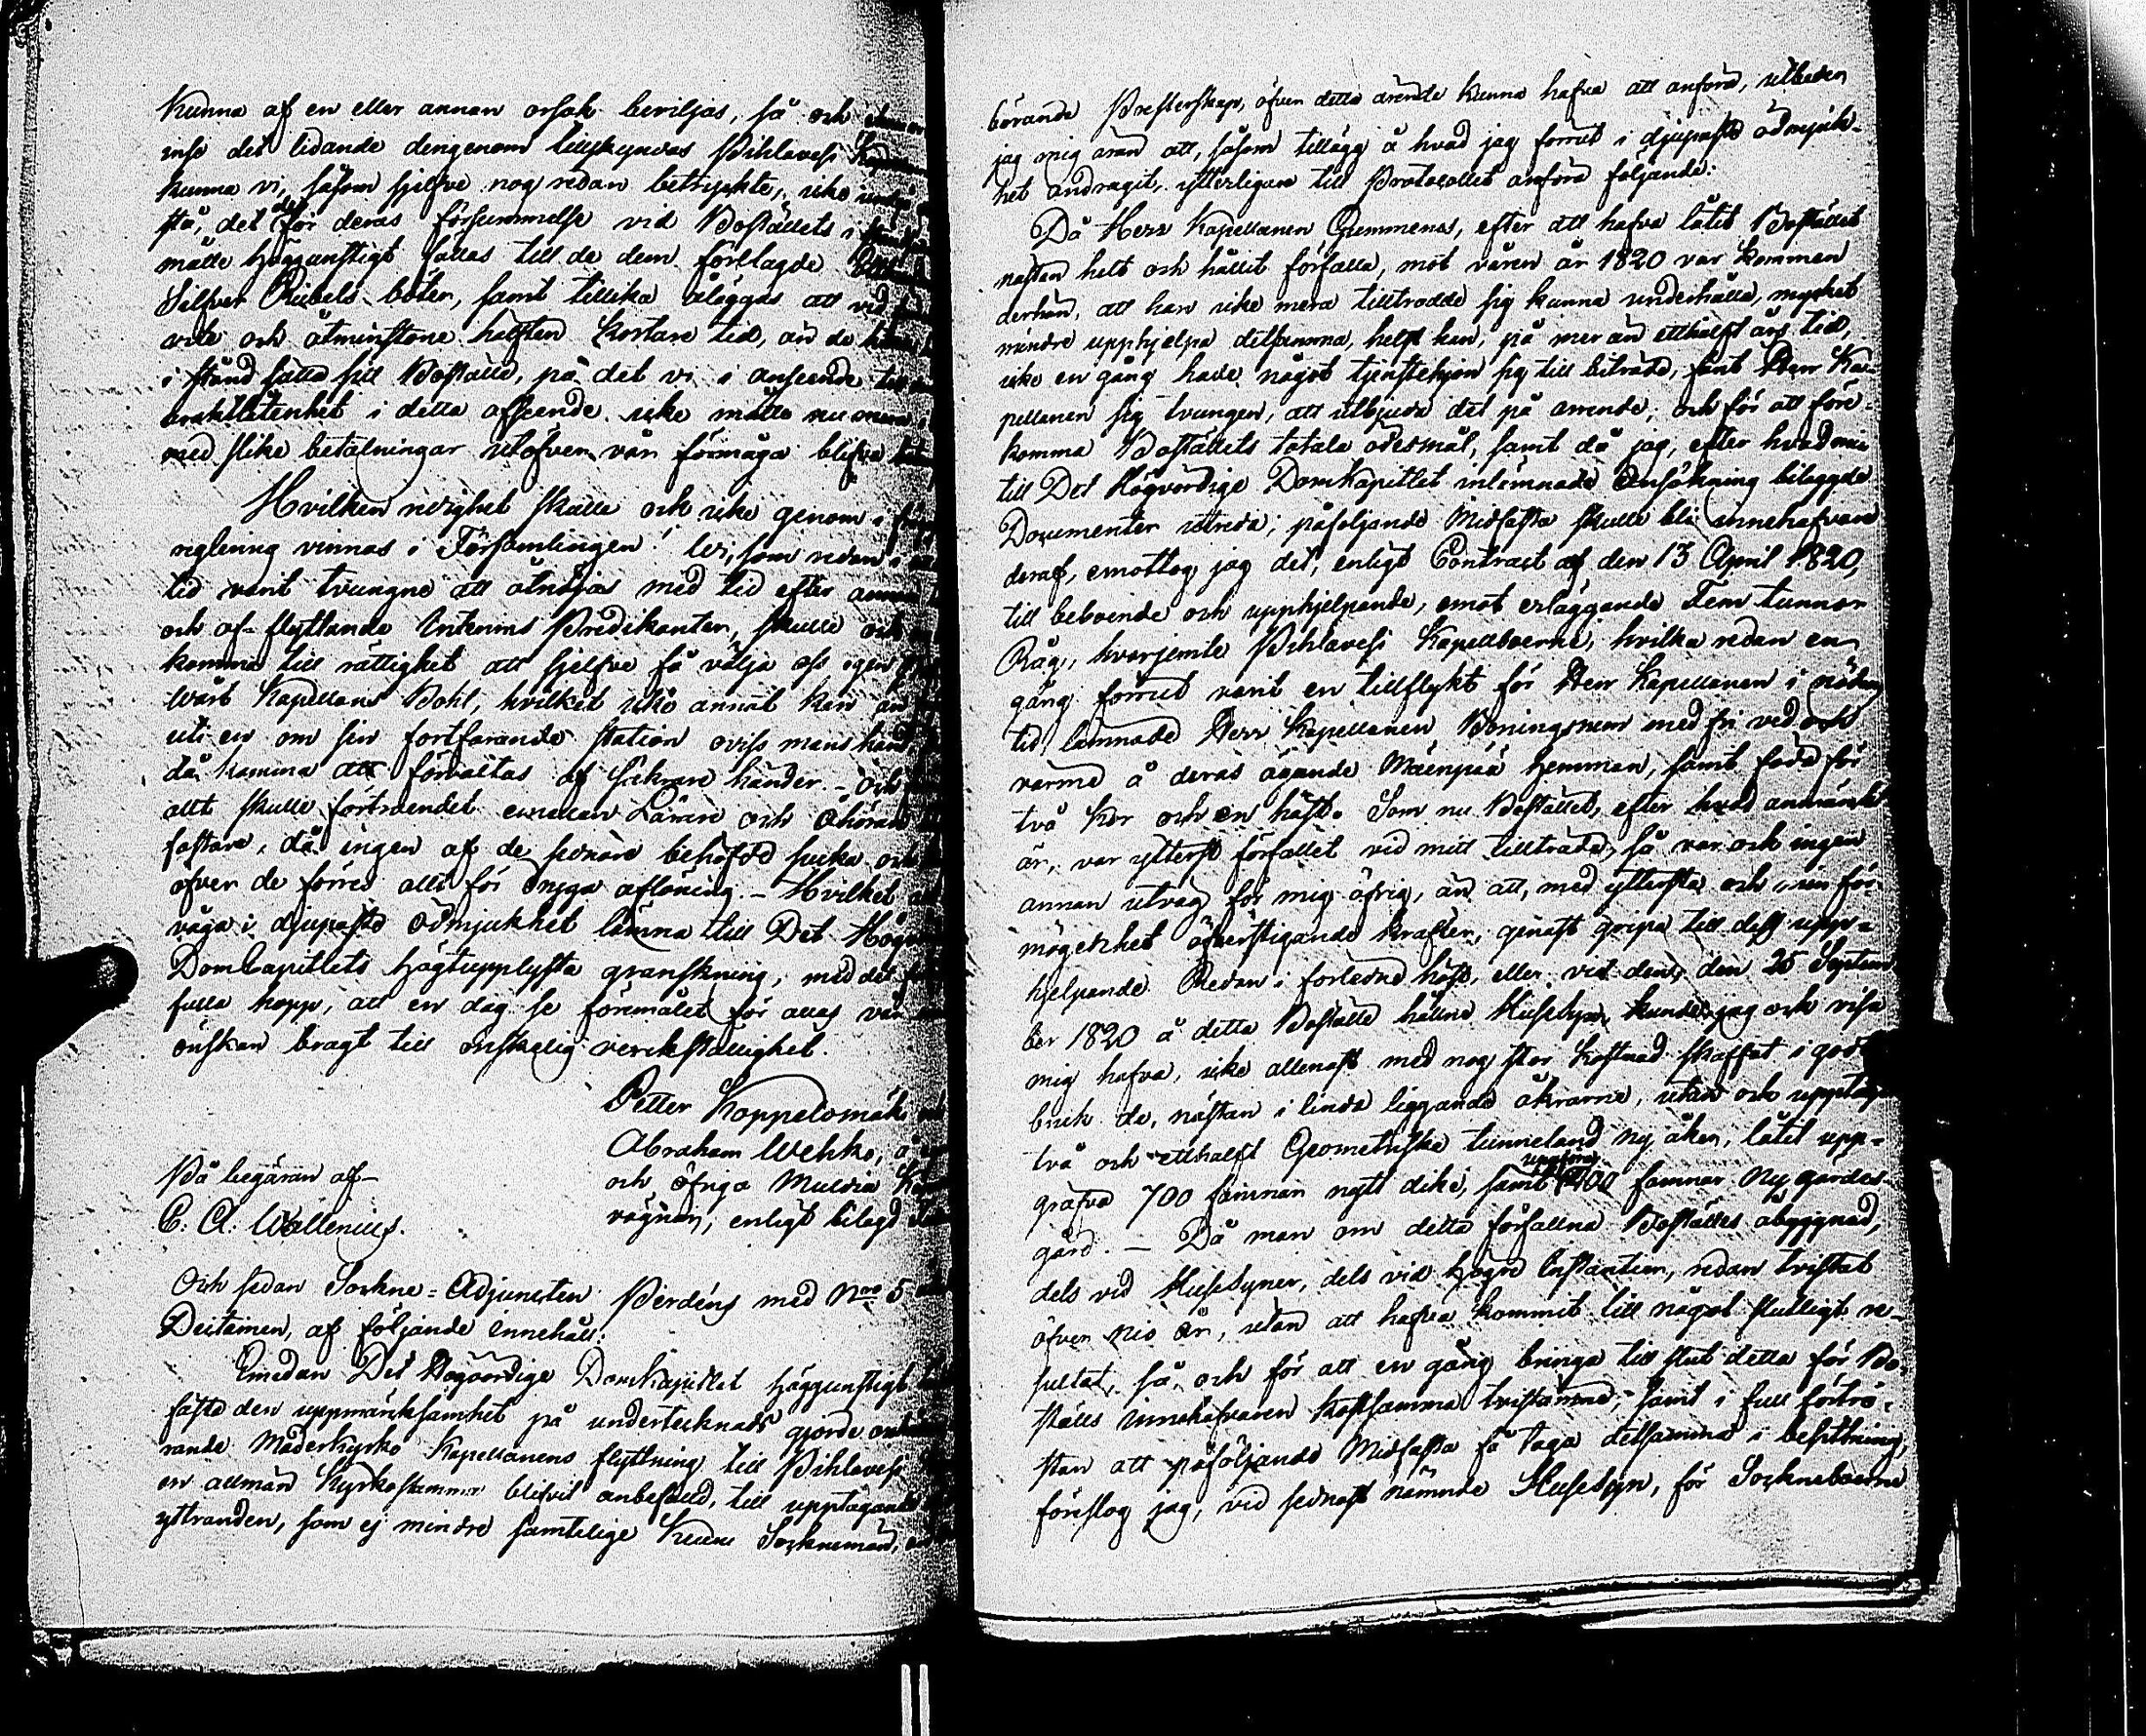 kunna af en eller annan orsak beviljas, så och
det lidande derigenom tillskyndas Pihlavesi
kunna vi, såsom sjelfve nog redan betryckte, icke
stå, det för deras försummelse vid Boställets
måtte höggunstigt fällas till de dem förelagde
Silfver Rubels böter, samt tillika åläggas att vid
vite och åtminstone hälften kortare tid, än de
i stånd sätta sitt Boställe, på det vi i anseende till
i detta afseende icke måtte nu mera
med slike betalningar utöfver vår förmåga blifva
Hvilken redighet skulle och icke genom
reglering vinnas i Församlingen! Wi, som redan i
tid varit tvungne att åtnöja med tid efter annan
och af-flyttande Interims Predikanter, skulle och
komma till rättighet att sjelfve få välja oss egen
Wårt Kapellans Bohl, hvilket icke annat kan än
uti en om sin fortfarande station oviss mans hand,
då komma att förvaltas af säkrare händer. – Och
allt skulle förtroendet emellan Lärare och Åhörare
fastare, då ingen af de sednare behöfde sucka och
öfver de förres allt för dryga aflöning. – Hvilket
våga i djupaste ödmjukhet lämna till Det Högv
DomCapitlets högtupplysta granskning, med det
fulla hopp, att en dag se föremålet för allas vår
önskan bragt till önskelig verckställighet.
Petter Koppelomäki
Abraham Wehko, å
och öfriga Muldia
vägnar, enligt bilagd
På begäran af
C. A. Wallenius.
Och sedan Sockne-Adjuncten Perdén med N:o 5
Dictamen, af följande innehåll:
Emedan Det Högvördige DomKapitlet höggunstigt
fästa den uppmärksamhet på undertecknads gjorde
rande Moderkyrko Kapellanens flyttning till Pihlavesi
en allmän Kyrkostämma blifvit anbefalld, till upptagande
yttranden, som ej mindre samtelige Keuru Socknemän,
börande Presterskap, öfver detta ärende kunna hafva att anföra, utbeder
jag mig äran att, såsom tillägg å hvad jag förrut i djupaste ödmjuk-
het andragit, ytterligare till Protocollet anföra följande:
Då Herr Kapellanen Gummerus, efter att hafva låtit Bostället
nästan helt och hållit förfalla, mot våren år 1820 var kommen
derhän, att han icke mera tilltrodde sig kunna underhålla, mycket
mindre upphjelpa detsamma, helst han, på mer än etthalft års tid,
icke en gång hade något tjenstehjon sig till biträde, fant Herr Ka-
pellanen sig tvungen, att utbjuda det på arrende, och för att före-
komma Boställets totala ödesmål, samt då jag, efter hvad min
till Det Högvördige DomKapitlet inlämnade Ansökning bilagde
Documenter utvisa, påföljande Midfasta skulle bli innehafvare
deraf, emottog jag det, enligt Contract af den 13 April 1820,
till beboende och upphjelpande, emot erläggande Fem tunnor
Råg, hvarjemte Pihlavesi Kapellboerne, hvilka redan en
gång förrut varit en tillflykt för Herr Kapellanen i nödens
tid lämnade Herr Kapellanen Boningsrum med fri ved och
värme å deras ägande Mäenpää Hemman, samt föda för
två Kor och en häst. Som nu Bostället, efter hvad anmärkt
är, var ytterst förfallit vid mitt tillträde, så var och ingen
annan utväg för mig öfrig, än att, med yttersta och min för-
mögenhet öfverstigande krafter, genast gripa till dess upp-
hjelpande. Redan i förledne höst, eller vid den, den 25 Septem
ber 1820 å detta Boställe hållne HusSyn, kunde jag och visa
mig hafva, icke allenast med nog stor kostnad skaffat i godt
bruk de, nästan i linda liggande åkrarne, utan och upptagit
två och etthalft Geometriska tunneland ny åker, låtit upp-
gräfva 700 famnar nytt dike, samt uppföra 700 famnar Ny gärdes-
gård. – Då man om detta förfallna Boställes åbyggnad,
dels vid HusSyner, dels vid högre Instantier, redan tvistat
öfver nio år, utan att hafva kommit till något slutligt re-
sultat, så och för att en gång bringa till slut detta för Bo-
ställs innehafvaren kostsamma tvistämne, samt i full förtrö-
stan att påföljande Midfasta få taga detsamma i besittning,
föreslog jag, vid sednast nämnde HusSyn, för Socknеboerne